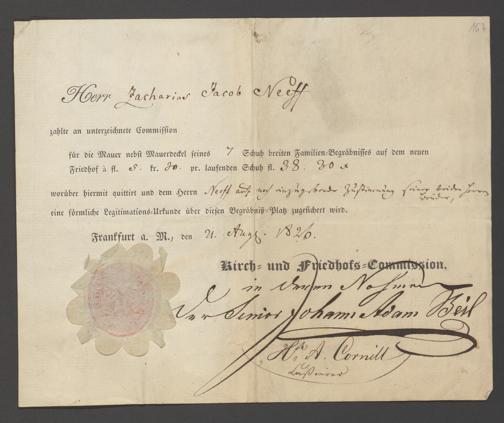 167
Herr Zacharias Jacob Neeff
zahlte an unterzeichnete Commission
für die Mauer nebst Mauerdeckel seines 7 Schuh breiten Familien-Begräbnisses auf dem neuen
Friedhof à fl. 5. kr. 30. pr. laufenden Schuh fl. 38. 30 x
worüber hiermit quittirt und dem Herrn Neeff auf noch einzugebende Zustimmung seiner beiden Herrn
Brüder,
eine förmliche Legitimations-Urkunde über diesen Begräbniß-Platz zugesichert wird.
Frankfurt a. M., den 21. Aug. 1826.
Kirch- und Friedhofs-Commission.
in deren Nahmen
Der Senior Johann Adam Beil
H. A. Cornill
Cassierer